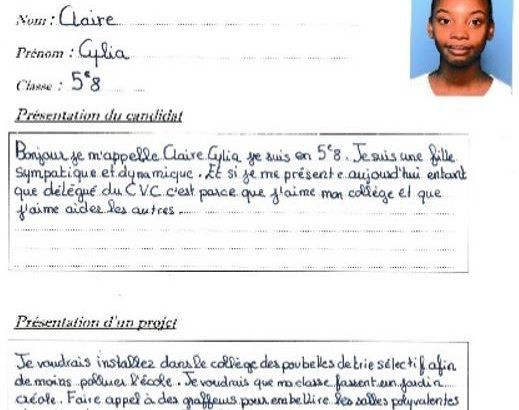 Nom : Claire
Prénom : Cylia
Classe : 5e8
Présentation du candidat
Bonjour je m'appelle Claire Cylia je suis en 5e8. Je suis une fille
sympatique et dynamique. Et si je me présente aujourd'hui entant
que délégué du CVC c'est parce que j'aime mon collège et que
j'aime aider les autres
Présentation d'un projet
Je voudrais installez dans le collège des poubelles de trie sélectif afin
de moins polluer l'école. Je voudrais que ma classe fassent un jardin
créole. Faire appel à des graffeurs pour embellire les salles polyvalentes